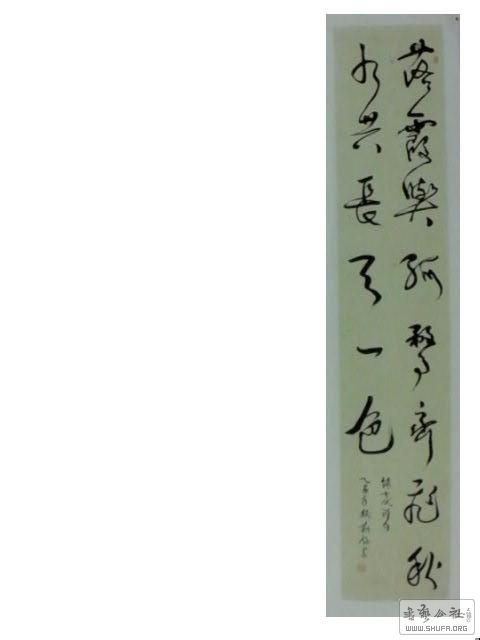 落霞與孤鶩齊飛秋
水共長天一色
書法公社
WWW.SHUFA.ORG